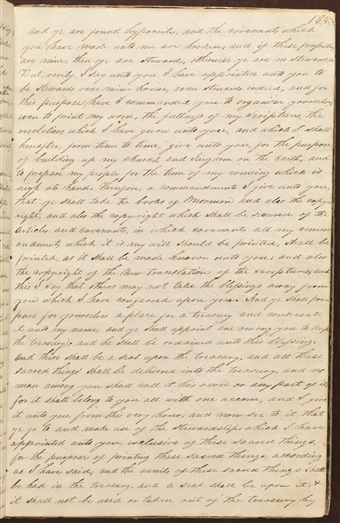 185
and ye are found hypocrits, and the covenants which
you have made unto me are broken, and if these properties
are mine then ye are stewards, otherwise ye are no stewards
But verily I say unto you I have appointed unto you to
be stewards over mine house, even stewards indeed, and for
this purpose have I commanded you to organize yourselves
even to print my word, the fullness of my scriptures, the
revelations which I have given unto you, and which I shall
hereafter, from time to time, give unto you, for the purpose
of building up my church and kingdom on the earth, and
to prepare my people for the time of my coming which is
nigh at hand. Therefore, a commandment I give unto you,
that ye shall take the books of Mormon and also the copy-
right, and also the copy-right which shall be secured of the
Articles and covenants, in which covenants all my comm-
andments which it is my will should be printed, shall be
printed, as it shall be made known unto you; and also
the copyright of the New translation of the scriptures, and
this I say that others may not take the blessings away from
you which I have conferred upon you. And ye shall pre-
pare for yourselves a place for a treasury and consecrate
it unto my name, and ye shall appoint one among you to keep
the treasury, and he shall be ordained unto this blessing.
And there shall be a seal upon the treasury, and all these
sacred things shall be delivered into the treasury, and no
man among you shall call it his own or any part of it
for it shall belong to you all with one accord, and I give
it unto you from this very hour, and now see to it, that
ye go to and make use of the stewardship which I have
appointed unto you, exclusive of these sacred things,
for the purpose of printing these sacred things according
as I have said, and the avails of these sacred things shall
be had in the treasury, and a seal shall be upon it, &
it shall not be used or taken out of the treasury by